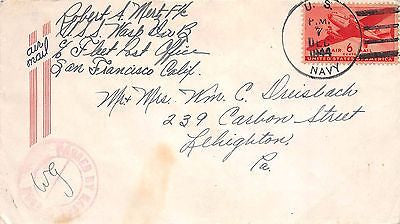 Robert S. Mert F/c
U.S.S. Wasp Div B
℅ Fleet Post Office
San Francisco Calif.
air
mail
U. S.
P.M.
7
DEC
1944
NAVY
AIR 6 MAIL
UNITED STATES OF AMERICA
Mr + Mrs. Wm. C. Dreisbach
239 Carbon Street
Lehighton,
Pa.
PASSED BY
wg